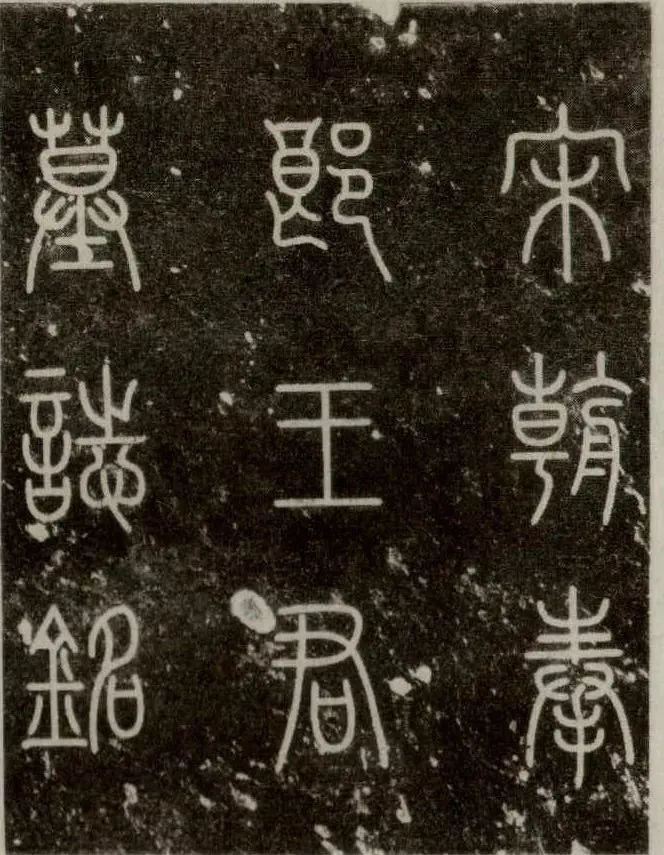 宋朝奉
郎王君
墓誌銘